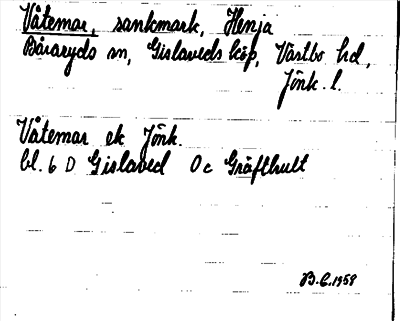 Våtemar, sankmark, Henja
Båraryds sn, Gislaveds köp, Västbo hd,
Jönk. l.
Våtemar ek Jönk.
bl. 6 D Gislaved 0c Gräfthult
B.E. 1958